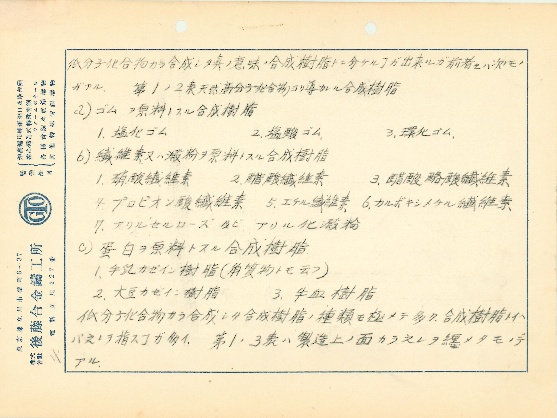 低分子化合物カラ合成シタ真ノ意味ノ合成樹脂トニ分ケルコトガ出来ルガ前者ニハ次ノモノ
ガアル. 第1ノ2表天然高分子化合物ヨリ導カル合成樹脂
a) ゴムヲ原料トスル合成樹脂
1. 塩化ゴム 2. 塩酸ゴム, 3. 環化ゴム.
b) 繊維素又ハ澱粉ヲ原料トスル合成樹脂
1. 硝酸繊維素 2. 醋酸繊維素 3. 醋酸酪酸繊維素
4. プロピオン酸繊維素 5. エチル繊維素 6. カルボキシメチル繊維素
7. アリルセルローズ 及ビ アリル化澱粉
c) 蛋白ヲ原料トスル合成樹脂
1. 牛乳カゼイン樹脂(角質物トモ云フ)
2. 大豆カゼイン樹脂 3. 牛血樹脂
低分子化合物カラ合成シタ合成樹脂ノ種類モ極メテ多ク, 合成樹脂トイヘ
バ之レヲ指スコトガ多イ. 第1ノ3表ハ製造上ノ面カラ之レヲ纒メタモノデ
アル.
後藤合金鑄工所
GTO